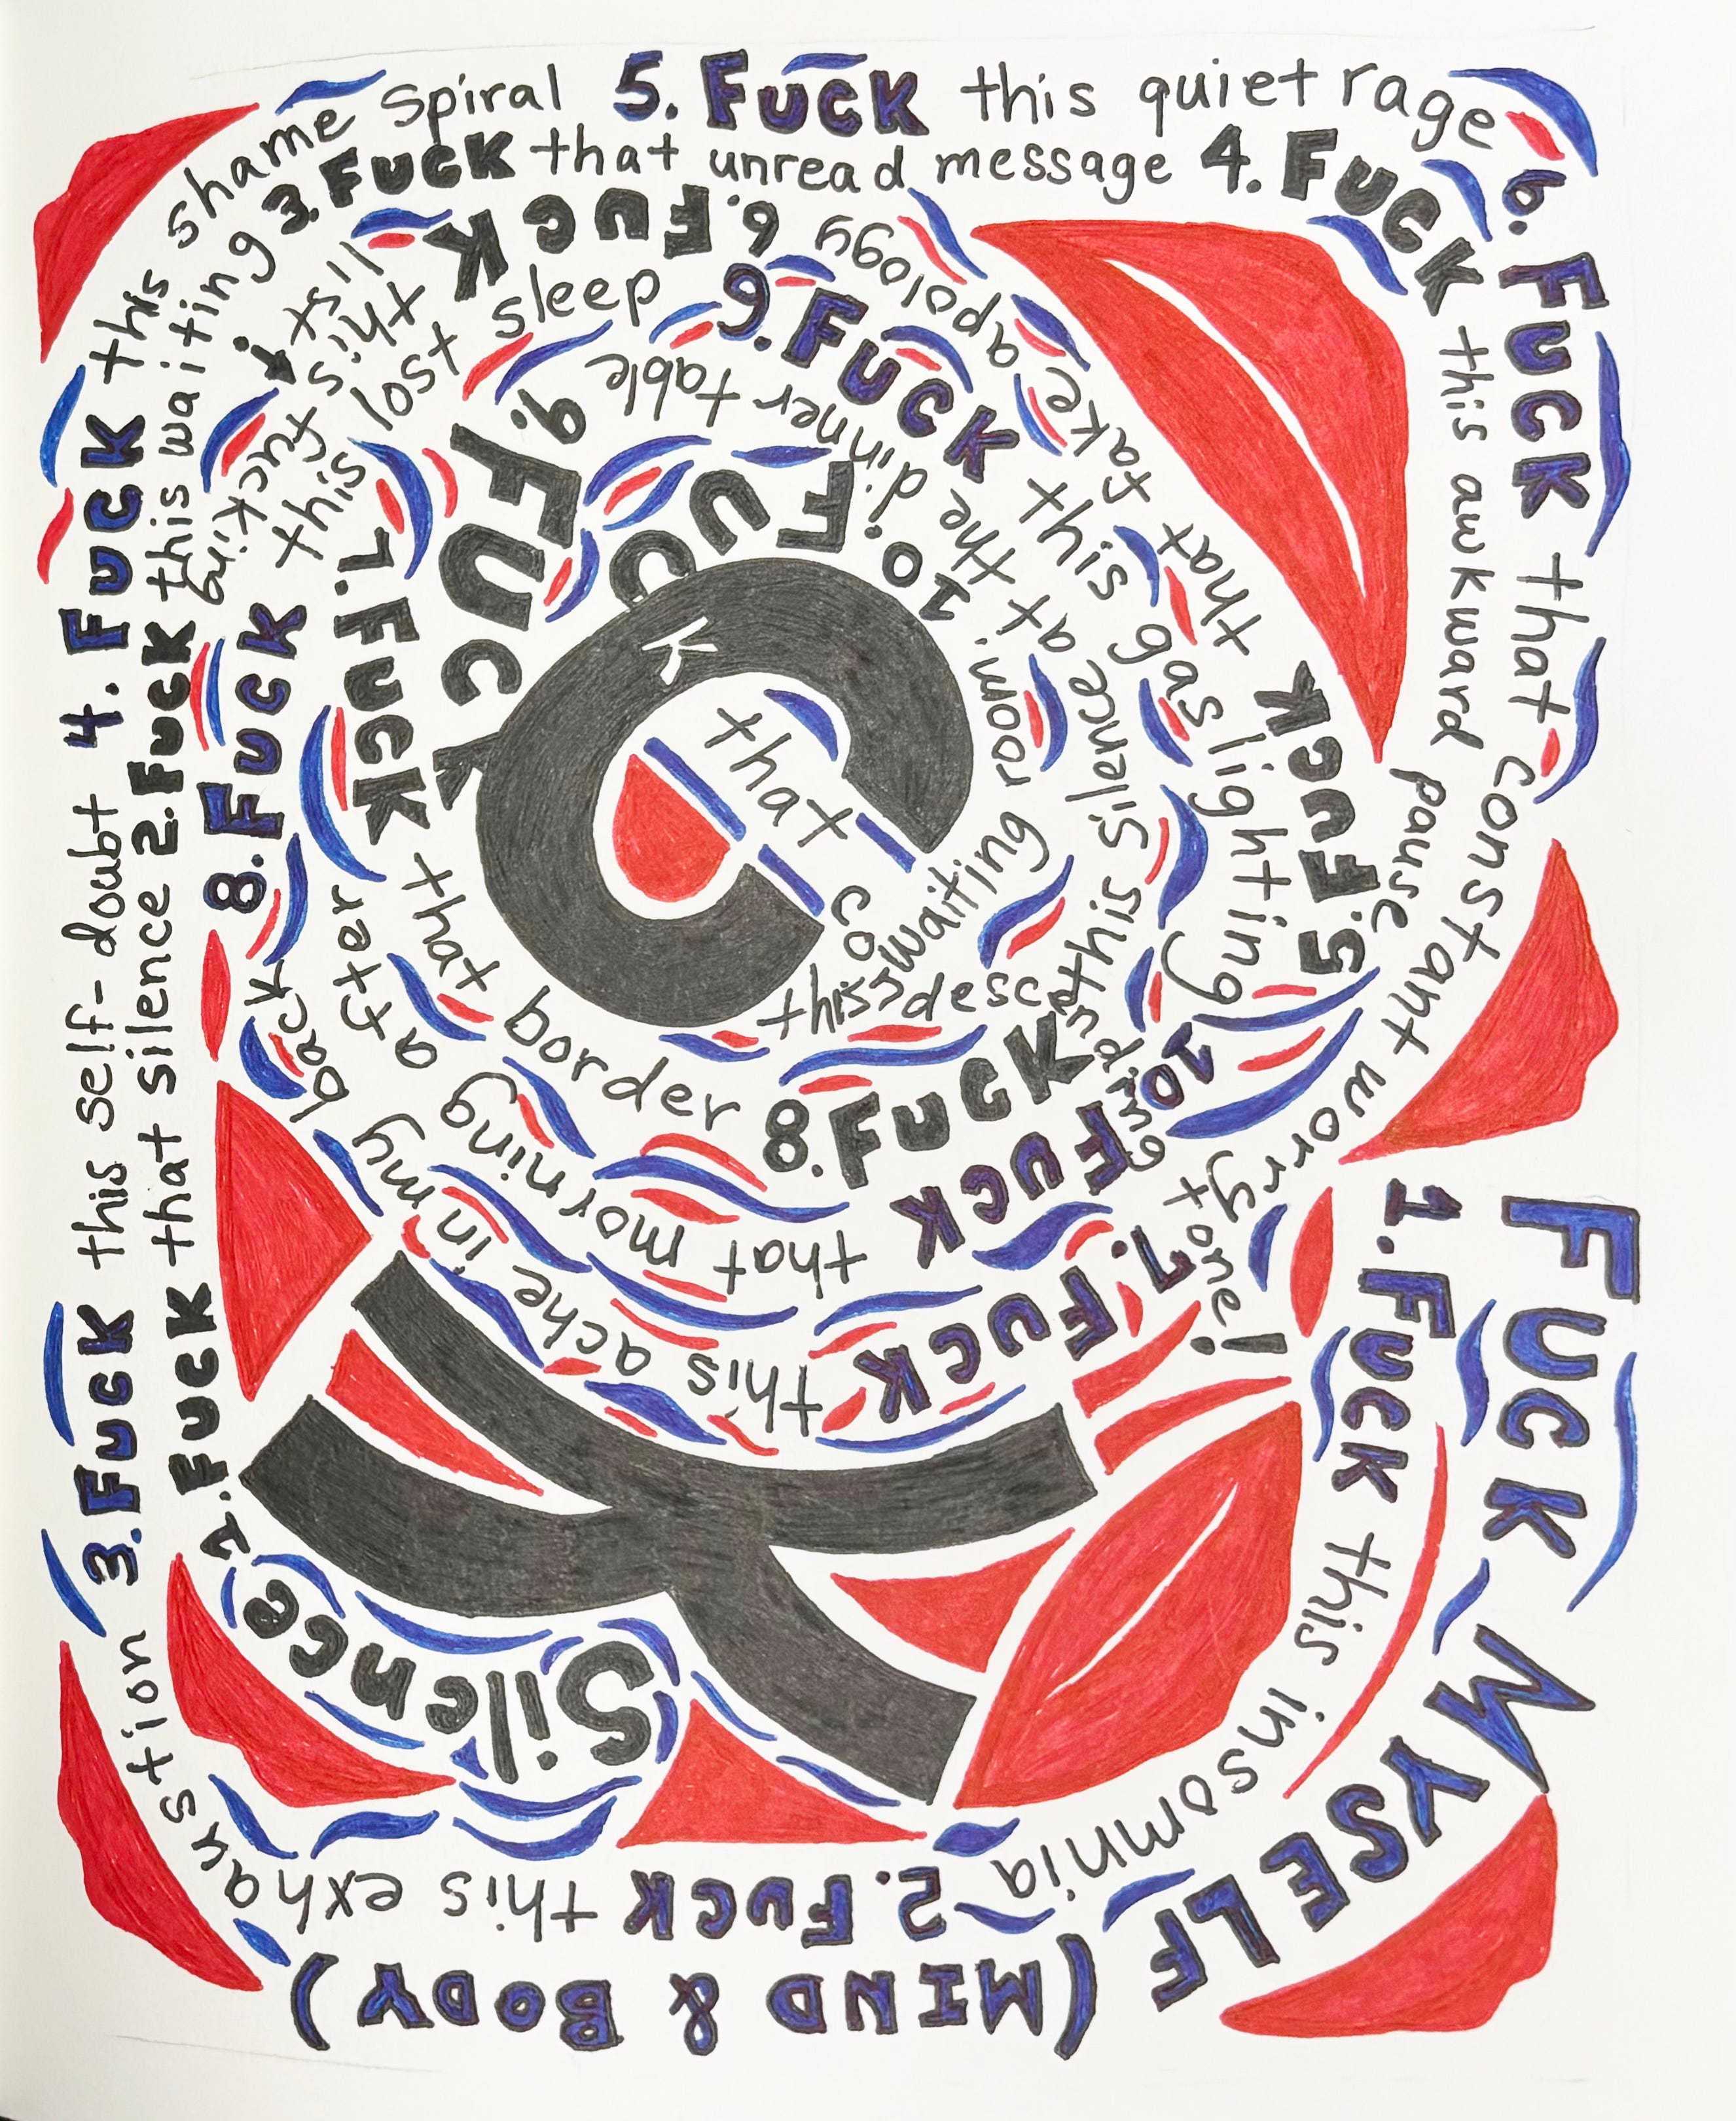 FUCK MYSELF (MIND & BODY)
1. FUCK this insomnia
2. FUCK this exhaustion
3. FUCK this self-doubt
4. FUCK this shame spiral
5. FUCK this quiet rage
6. FUCK that constant worry
7. FUCK this ache in my back
8. FUCK this lost sleep
9. FUCK this gas lighting
10 FUCK that morning after
Silence
1. FUCK that silence
2. FUCK this waiting
3. FUCK that unread message
4. FUCK this awkward pause
5. FUCK that fake apology
6. FUCK this fucking list!
7. FUCK that border
8. FUCK this silence at the dinner table
9. FUCK this waiting room.
10. FUCK that condescending tone!